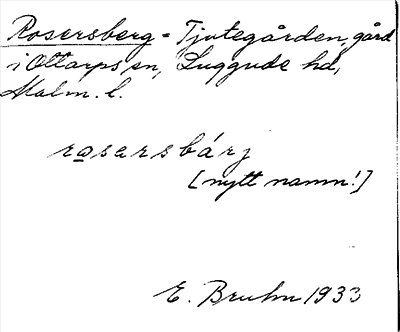 Rosersberg = Tjutegården, gård
i Ottarps sn, Luggude hd,
Malm. l.
rosersbárj
[nytt namn!]
E. Bruhn 1933